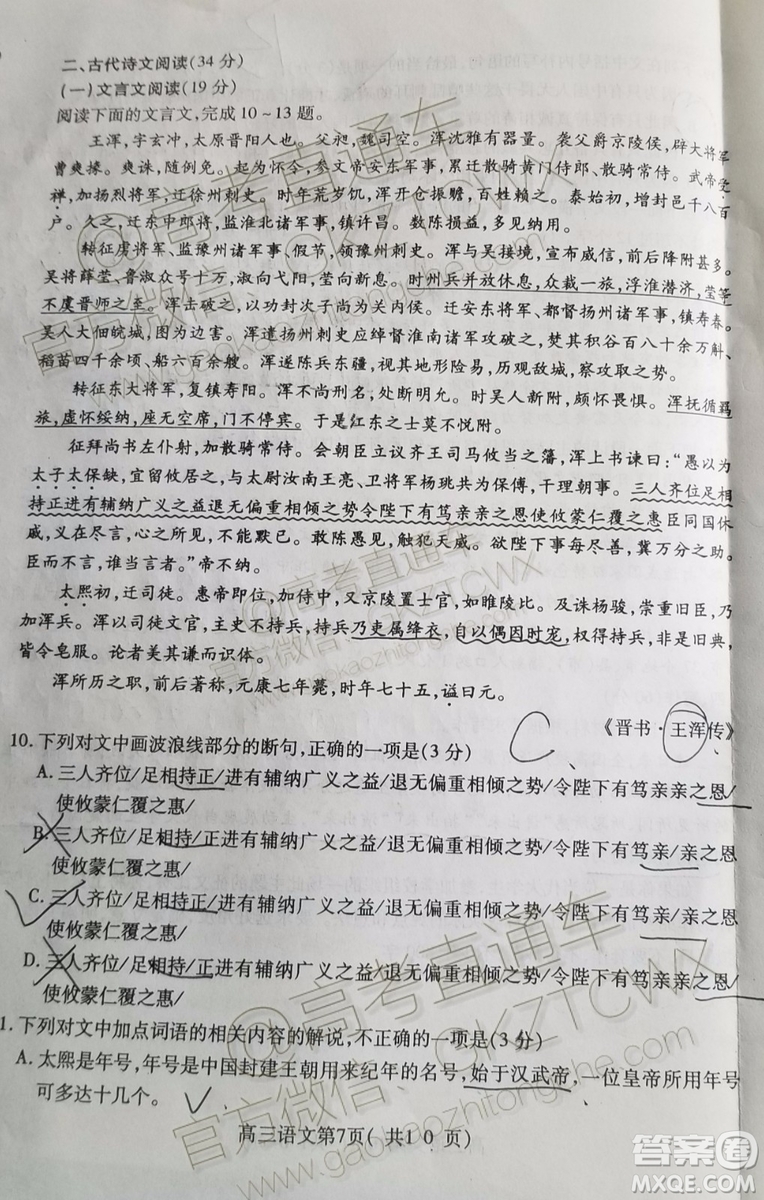 二、古代诗文阅读(34分)
(一)文言文阅读(19分)
阅读下面的文言文,完成10~13题。
王浑,字玄冲,太原晋阳人也。父昶,魏司空。浑沈雅有器量。袭父爵京陵侯,辟大将军
曹爽掾。爽诛,随例免。起为怀令,参文帝安东军事,累迁散骑黄门侍郎、散骑常侍。武帝受
禅,加扬烈将军,迁徐州刺史。时年荒岁饥,浑开仓振赡,百姓赖之。泰始初,增封邑千八百
户。久之,迁东中郎将,监淮北诸军事,镇许昌。数陈损益,多见纳用。
转征虏将军、监豫州诸军事、假节,领豫州刺史。浑与吴接境,宣布威信,前后降附甚多。
吴将薛莹、鲁淑众号十万,淑向弋阳,莹向新息。时州兵并放休息,众裁一旅,浮淮潜济,莹等
不虞晋师之至。浑击破之,以功封次子尚为关内侯。迁安东将军、都督扬州诸军事,镇寿春。
吴人大佃皖城,图为边害。浑遣扬州刺史应绰督淮南诸军攻破之,并破诸别屯,焚其积谷百八十余万斛、
稻苗四千余顷、船六百余艘。浑遂陈兵东疆,视其地形险易,历观敌城,察攻取之势。
转征东大将军,复镇寿阳。浑不尚刑名,处断明允。时吴人新附,颇怀畏惧。浑抚循羁
旅,虚怀绥纳,座无空席,门不停宾。于是江东之士莫不悦附。
征拜尚书左仆射,加散骑常侍。会朝臣立议齐王司马攸当之藩,浑上书谏曰:“愚以为
太子太保缺,宜留攸居之,与太尉汝南王亮、卫将军杨珧共为保傅,干理朝事。三人齐位足相
持正进有辅纳广义之益退无偏重相倾之势令陛下有笃亲亲之恩使攸蒙仁覆之惠臣同国休
戚,义在尽言,心之所见,不能默已。敢陈愚见,触犯天威。欲陛下事每尽善,冀万分之助。
臣而不言,谁当言者。”帝不纳。
太熙初,迁司徒。惠帝即位,加侍中,又京陵置士官,如睢陵比。及诛杨骏,崇重旧臣,乃
加浑兵。浑以司徒文官,主史不持兵,持兵乃吏属绛衣,自以偶因时宠,权得持兵,非是旧典,
皆令皂服。论者美其谦而识体。
浑所历之职,前后著称,元康七年薨,时年七十五,谥曰元。
《晋书·王浑传》
10.下列对文中画波浪线部分的断句,正确的一项是(3分)
C
A.三人齐位/足相持正/进有辅纳广义之益/退无偏重相倾之势/令陛下有笃亲亲之恩/
使攸蒙仁覆之惠/
B.三人齐位/足相持/正进有辅纳广义之益/退无偏重相倾之势/令陛下有笃亲/亲之恩
使攸蒙仁覆之惠/
C.三人齐位/足相持正/进有辅纳广义之益/退无偏重相倾之势/令陛下有笃亲/亲之恩
使攸蒙仁覆之惠/
D.三人齐位/足相持/正进有辅纳广义之益/退无偏重相倾之势/令陛下有笃亲亲之恩/
使攸蒙仁覆之惠/
1.下列对文中加点词语的相关内容的解说,不正确的一项是(3分)
A.太熙是年号,年号是中国封建王朝用来纪年的名号,始于汉武帝,一位皇帝所用年号
可多达十几个。
高三语文第7页(共10页)
@高考直通车
官方微信:GKZTCWX
www.gaokaozhitongche.com
答案圈
MXQE.COM